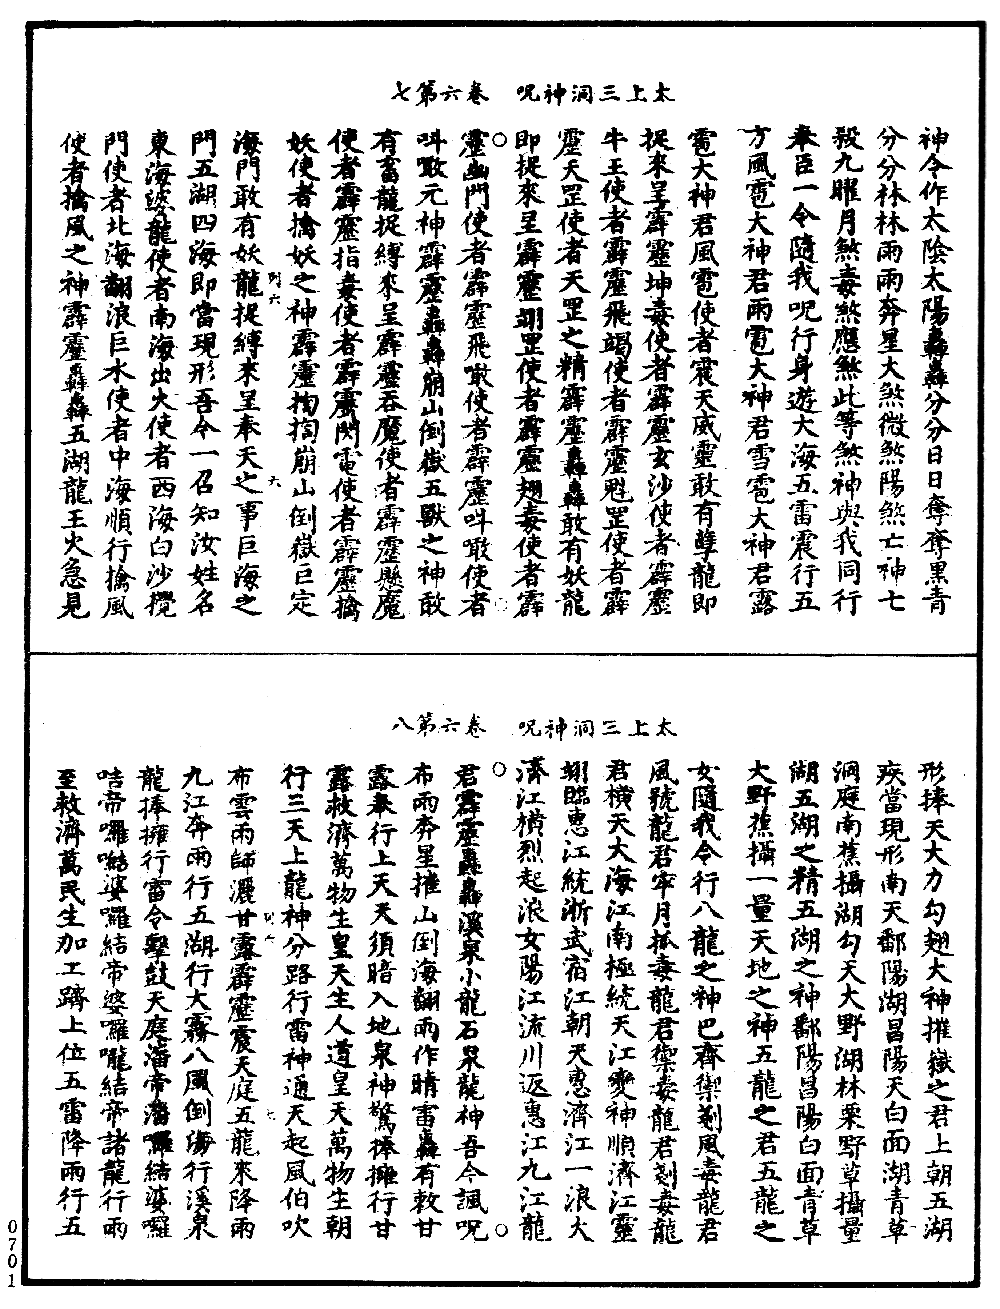 太上三洞神呪　卷六第七
神令作太陰太陽轟轟分分日日奪奪黑青
分分林林雨雨奔星大煞微煞陽煞亡神七
殺九曜月煞毒煞應煞此等煞神與我同行
奉臣一令隨我呪行身遊大海五雷震行五
方風雹大神君雨雹大神君雪雹大神君露
雹大神君風雹使者震天威靈敢有孽龍即
捉來呈霹靂坤毒使者霹靂玄沙使者霹靂
牛王使者霹靂飛竭使者霹靂魁罡使者霹
靂天罡使者天罡之精霹靂轟轟敢有妖龍
即捉來呈霹靂翊罡使者霹靂翅毒使者霹
靂幽門使者霹靂飛噉使者霹靂叫噉使者
叫噉元神霹靂轟轟崩山倒嶽五獸之神敢
有畜龍捉縛來呈霹靂吞魔使者霹靂懸魔
使者霹靂指毒使者霹靂閃電使者霹靂擒
妖使者擒妖之神霹靂掏掏崩山倒嶽巨定
海門敢有妖龍捉縛來呈奉天之事巨海之
門五湖四海即當現形吾今一召知汝姓名
東海婆龍使者南海出火使者西海白沙攪
門使者北海翻浪巨水使者中海順行擒風
使者擒風之神霹靂轟轟五湖龍王火急見
太上三洞神呪　卷六第八
形捧天大力勾翅大神摧嶽之君上朝五湖
疾當現形南天鄱陽湖昌陽天白面湖青草
洞庭南蕉攝湖勾天大野湖林栗野草攝量
湖五湖之精五湖之神鄱陽昌陽白面青草
大野蕉攝一量天地之神五龍之君五龍之
女隨我令行八龍之神巴齊禦剗風毒龍君
風號龍君牢月抵毒龍君禦毒龍君剗毒龍
君橫天大海江南極統天江變神順濟江靈
翊臨惠江統浙武宿江朝天惠濟江一浪大
濟江橫烈起浪女陽江流川返惠江九江龍
君霹靂轟轟溪泉小龍石泉龍神吾今諷呪
布雨奔星摧山倒海翻雨作晴雷轟有敕甘
露奉行上天天須暗入地泉神驚捧擁行甘
露救濟萬物生皇天生人道皇天萬物生朝
行三天上龍神分路行雷神通天起風伯吹
布雲雨師灑甘露霹靂震天庭五龍來降雨
九江奔雨行五湖行大霧八風倒海行溪泉
龍捧擁行雷令擊鼓天庭潘帝潘囉結婆囉
咭帝囉囉結婆囉結帝婆囉嚨結帝諸龍行雨
至救濟萬民生加工躋上位五雷降雨行五
0701